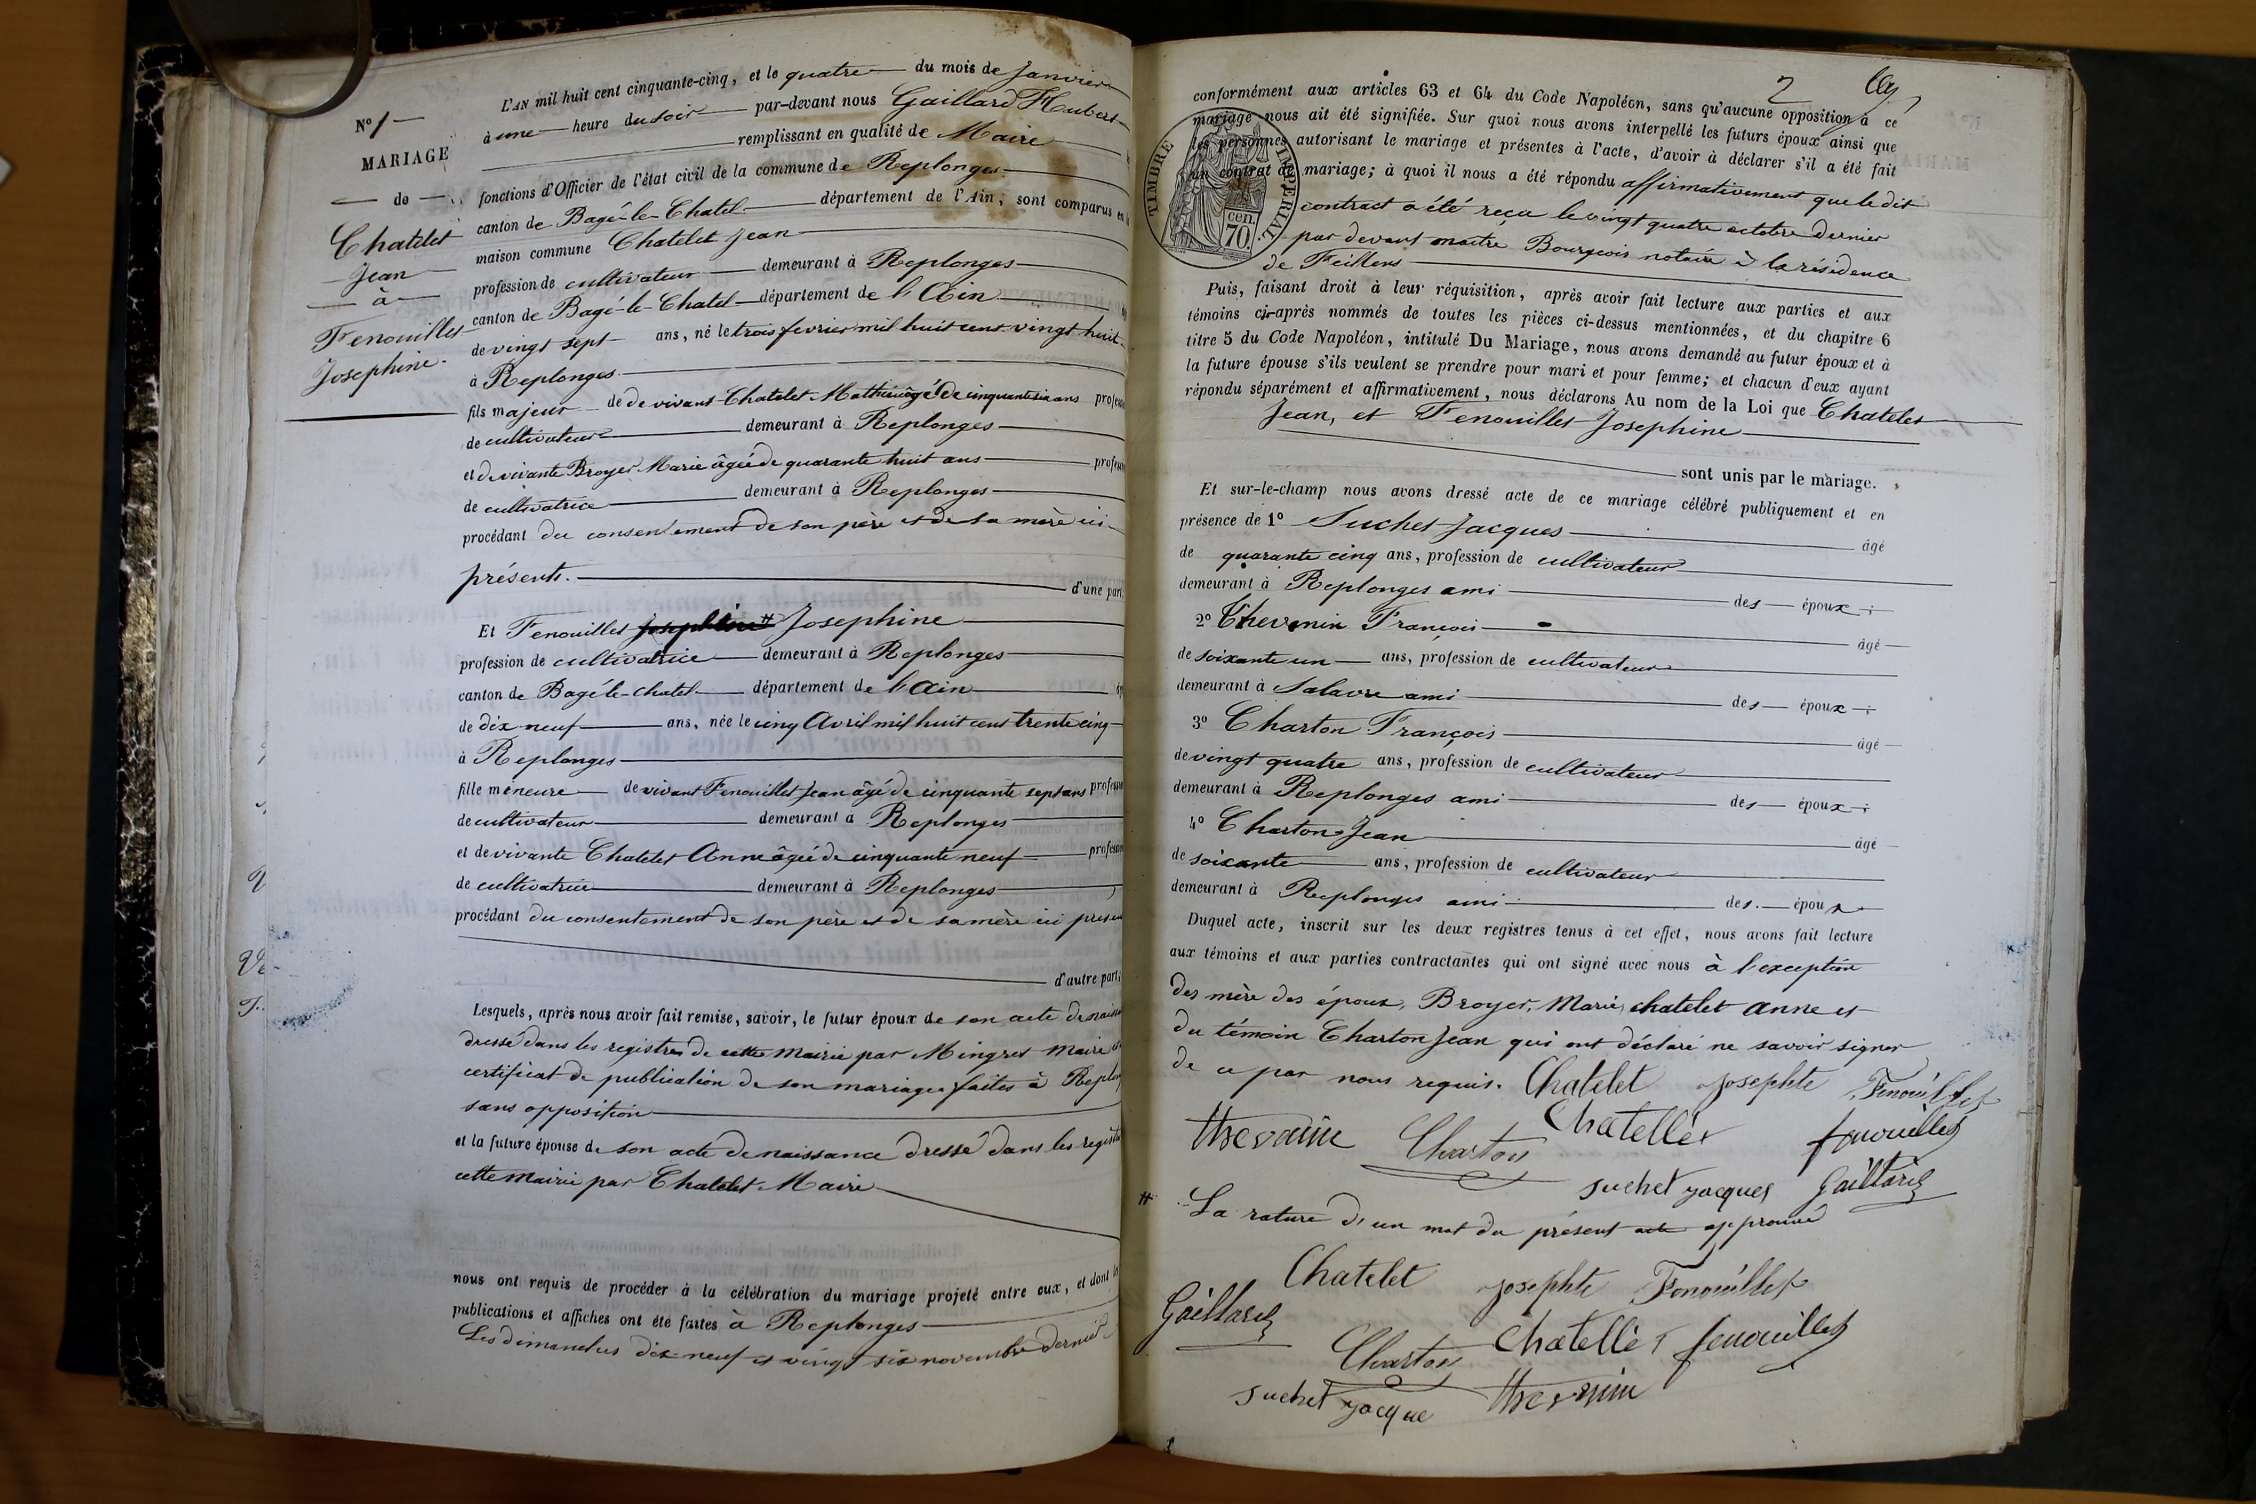 L'AN mil huit cent cinquante-cinq, et le quatre du mois de Janvier
à une heure du soir par-devant nous Gaillard Hubert
remplissant en qualité de Maire
fonctions d'Officier de l'état civil de la commune de Replonges
canton de Bagé-le-Chatel département de l'Ain, sont comparus en
maison commune Chatelet Jean
profession de cultivateur demeurant à Replonges
canton de Bagé-le-Chatel département de l'Ain
de vingt sept ans, né le trois fevrier mil huit cent vingt huit
à Replonges
fils majeur de de vivant Chatelet Mathieu âgé de cinquante six ans profess
de cultivateur demeurant à Replonges
et de vivante Broyer Marie âgée de quarante huit ans profess
de cultivatrice demeurant à Replonges
procédant du consentement de son père et de sa mère ici
présents. d'une part;
Et Fenouillet Josephine Josephine
profession de cultivatrice demeurant à Replonges
canton de Bagé-le-chatel département de l'Ain
de dix neuf ans, née le cinq Avril mil huit cent trente cinq
à Replonges
fille meneure de vivant Fenouillet Jean âgé de cinquante sept ans profess
de cultivateur demeurant à Replonges
et de vivante Chatelet Anne âgée de cinquante neuf profess
de cultivatrice demeurant à Replonges
procédant du consentement de son père et de sa mère ici présen
d'autre part;
Lesquels, après nous avoir fait remise, savoir, le futur époux de son acte de naiss
dressé dans les registres de cette mairie par Mingret Maire et
certificat de publication de son mariage faites à Replon
sans opposition
et la future épouse de son acte de naissance dressé dans les regist
cette mairie par Chatelet Maire
nous ont requis de procéder à la célébration du mariage projeté entre eux, et dont
publications et affiches ont été faites à Replonges
Les dimanches dix neuf et vingt six novembre dernier
N° 1
MARIAGE
de
Chatelet
Jean
à
Fenouillet
Josephine.
2
conformément aux articles 63 et 64 du Code Napoléon, sans qu'aucune opposition à ce
mariage nous ait été signifiée. Sur quoi nous avons interpellé les futurs époux ainsi que
les personnes autorisant le mariage et présentes à l'acte, d'avoir à déclarer s'il a été fait
un contrat de mariage; à quoi il nous a été répondu affirmativement que le dit
contract a été reçu le vingt quatre octobre dernier
par devant maitre Bourgeois notaire à la résidence
de Feillens
TIMBRE IMPERIAL
70. cen.
Puis, faisant droit à leur réquisition, après avoir fait lecture aux parties et aux
témoins ci-après nommés de toutes les pièces ci-dessus mentionnées, et du chapitre 6
titre 5 du Code Napoléon, intitulé Du Mariage, nous avons demandé au futur époux et à
la future épouse s'ils veulent se prendre pour mari et pour femme; et chacun d'eux ayant
répondu séparément et affirmativement, nous déclarons Au nom de la Loi que Chatelet
Jean, et Fenouillet Josephine
sont unis par le mariage.
Et sur-le-champ nous avons dressé acte de ce mariage célébré publiquement et en
présence de 1° Suchet Jacques âgé
de quarante cinq ans, profession de cultivateur
demeurant à Replonges ami des époux;
2° Thevenin François âgé
de soixante un ans, profession de cultivateur
demeurant à Salavre ami des époux;
3° Charton François âgé
de vingt quatre ans, profession de cultivateur
demeurant à Replonges ami des époux;
4° Charton Jean âgé
de soixante ans, profession de cultivateur
demeurant à Replonges ami des époux
Duquel acte, inscrit sur les deux registres tenus à cet effet, nous avons fait lecture
aux témoins et aux parties contractantes qui ont signé avec nous à l'exception
des mère des époux, Broyer Marie, chatelet anne et
du témoin Charton Jean qui ont déclaré ne savoir signer
de ce par nous requis. Chatelet Josephte Fenouillet
thevanin Charton Chatellet fenouillet
suchet jacques Gaillard
# La rature d'un mot du présent acte approuvé
Chatelet Josephte Fenouillet
Gaillard Charton Chatellet fenouillet
suchet jacque thevenin